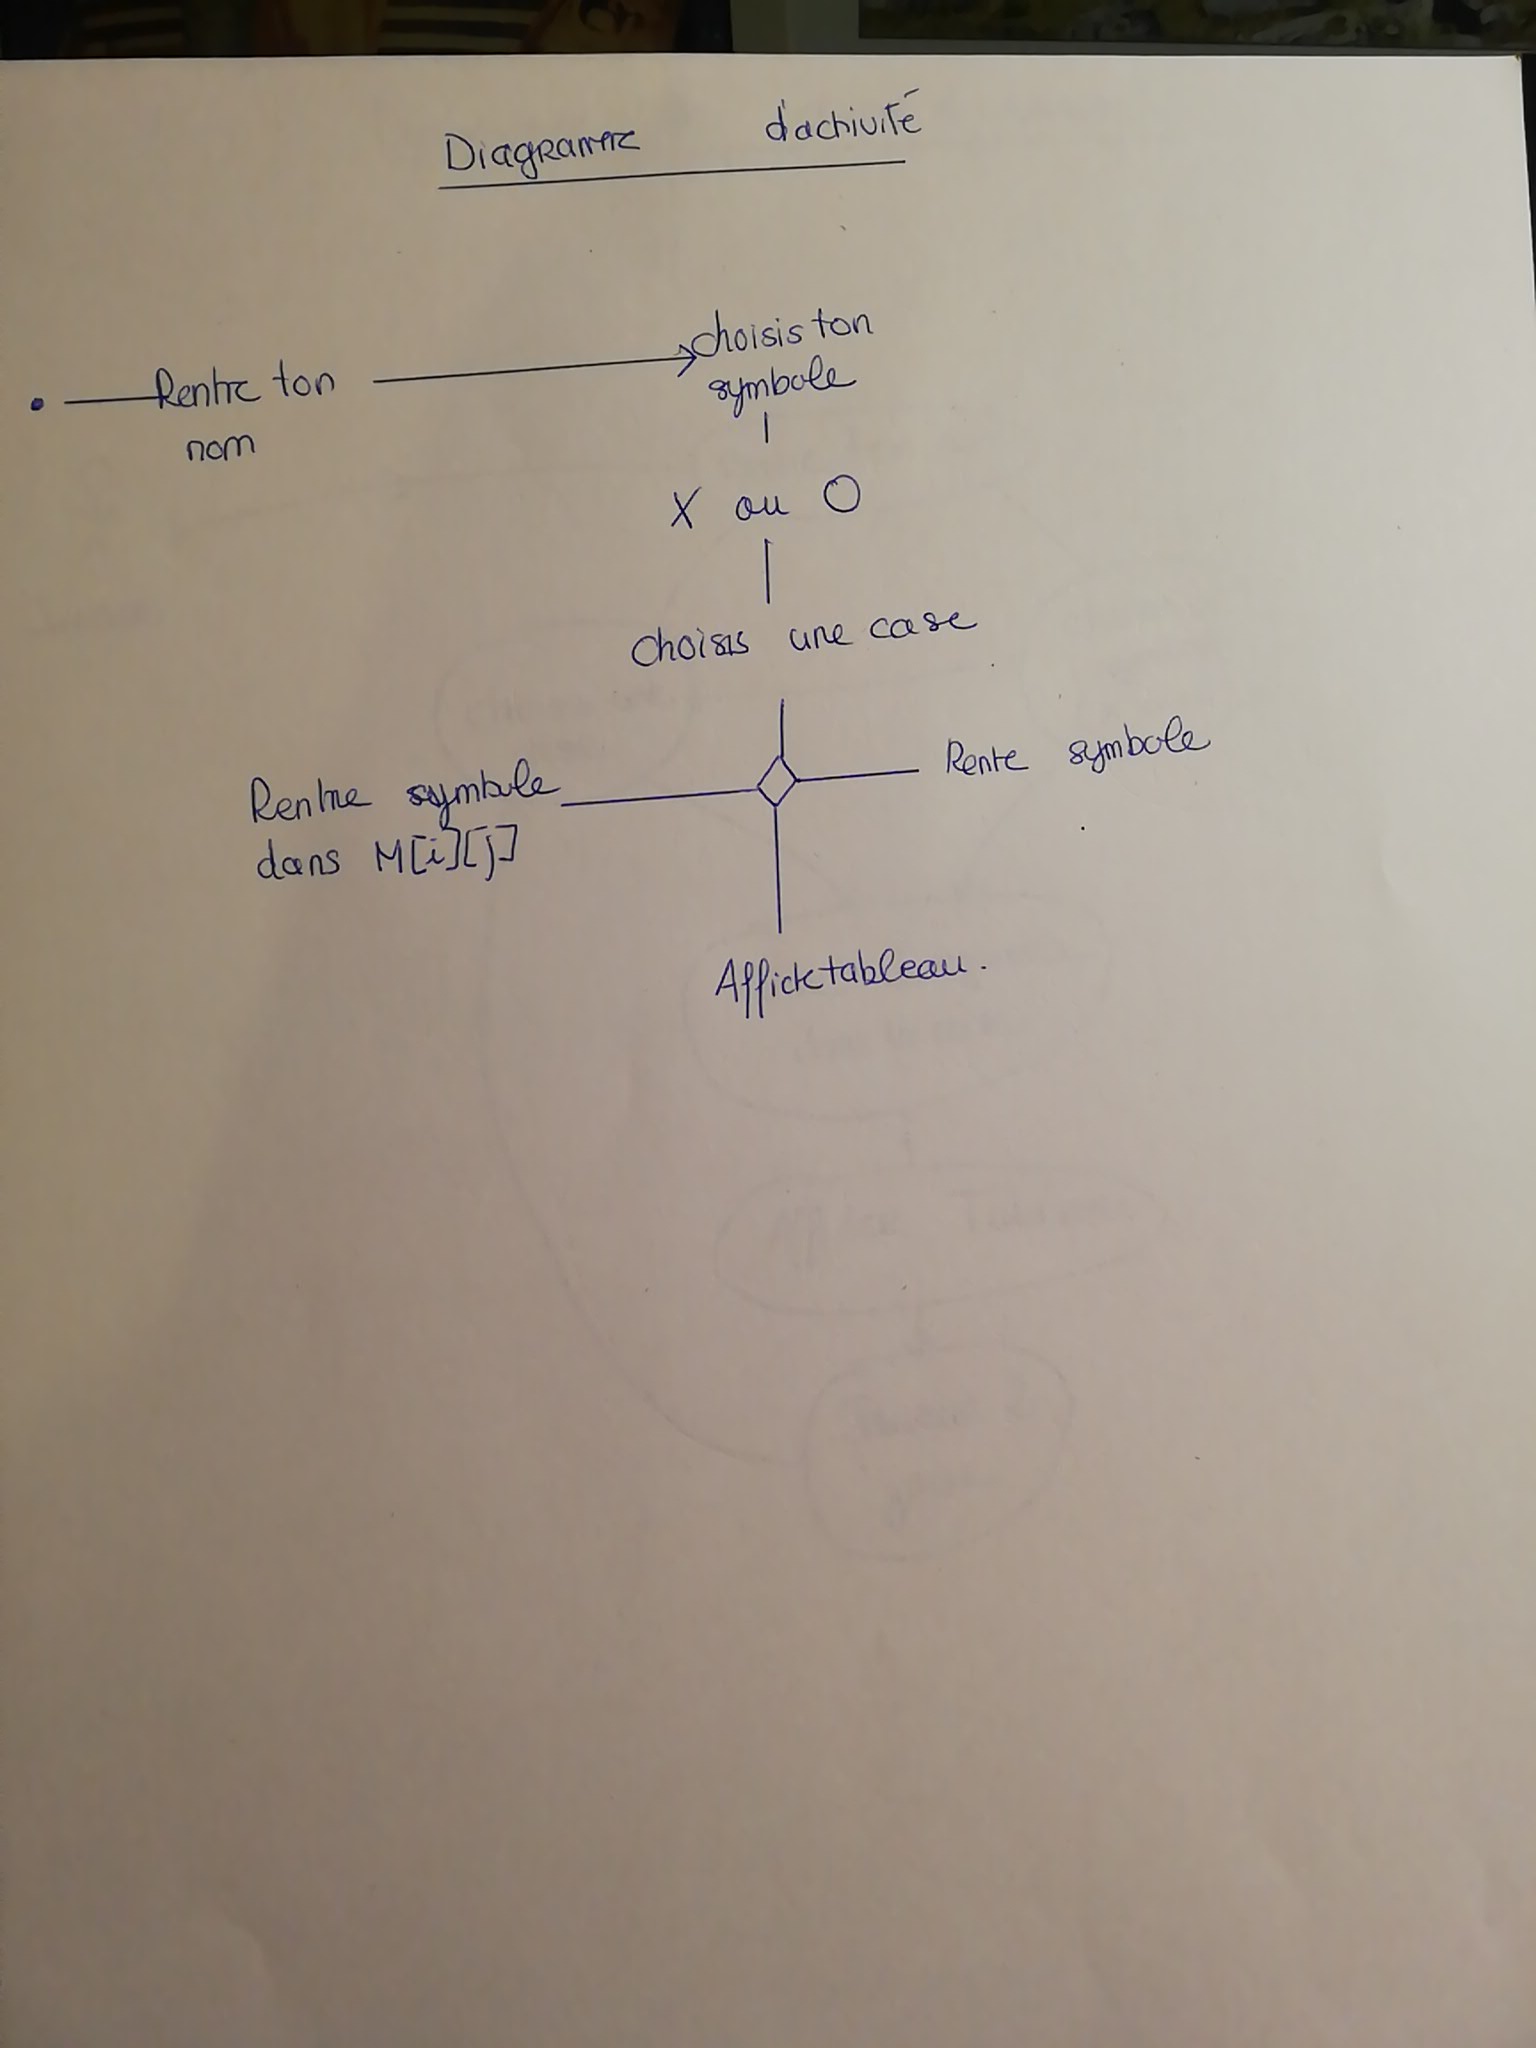 Diagramme d'activité
Rentre ton
nom
choisis ton
symbole
X ou O
choisis une case
Rentre symbole
dans M[i][j]
Rente symbole
Affiche tableau.